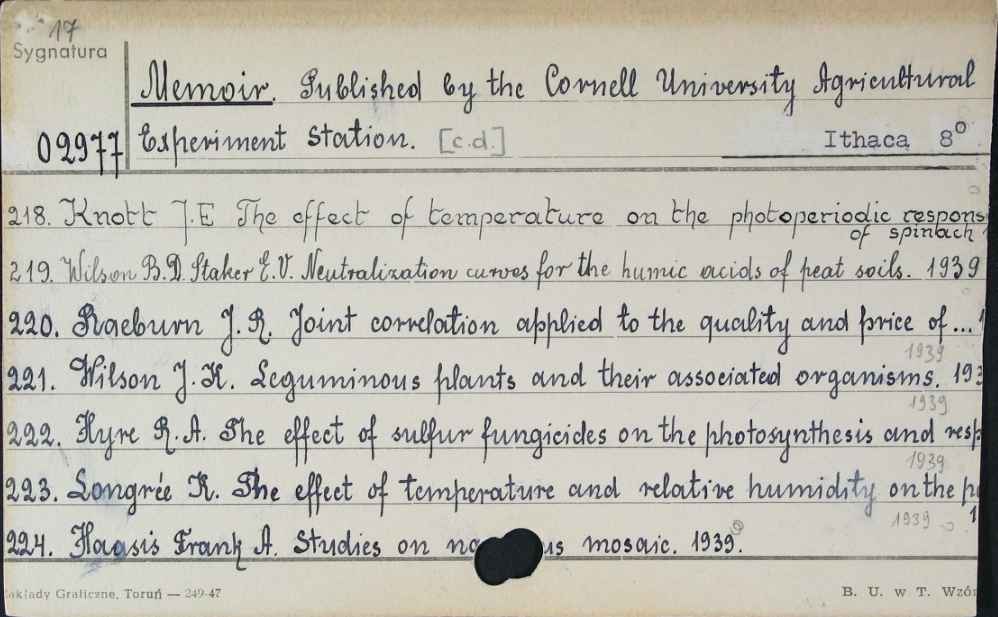 17
Sygnatura
Memoir. Published by the Cornell University Agricultural
02977 Experiment Station. [c.d.] Ithaca 8°
218. Knott J.E The effect of temperature on the photoperiodic respons
of spinach
219. Wilson B.D. Staker E.V. Neutralization curves for the humic acids of peat soils. 1939
220. Raeburn J.R. Joint correlation applied to the quality and price of...
1939
221. Wilson J.K. Leguminous plants and their associated organisms. 193
1939
222. Hyre R.A. The effect of sulfur fungicides on the photosynthesis and resp
1939
223. Longrée K. The effect of temperature and relative humidity on the p
1939
224. Haasis Frank A. Studies on na us mosaic. 1939.
akłady Graficzne, Toruń — 249-47 B. U. w T. Wzór